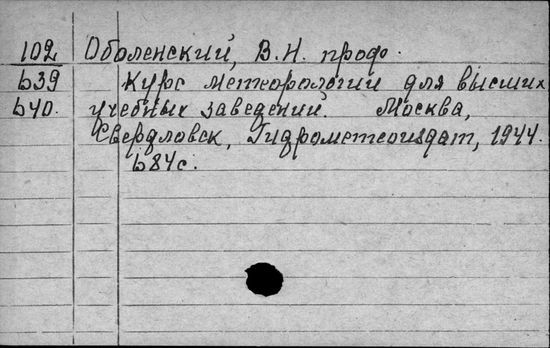 102 Оболенский, В.Н. проф.
639 Курс метеорологии для высших
640. учебных заведений. Москва,
Свердловск, Гидрометеоиздат, 1944.
684с.